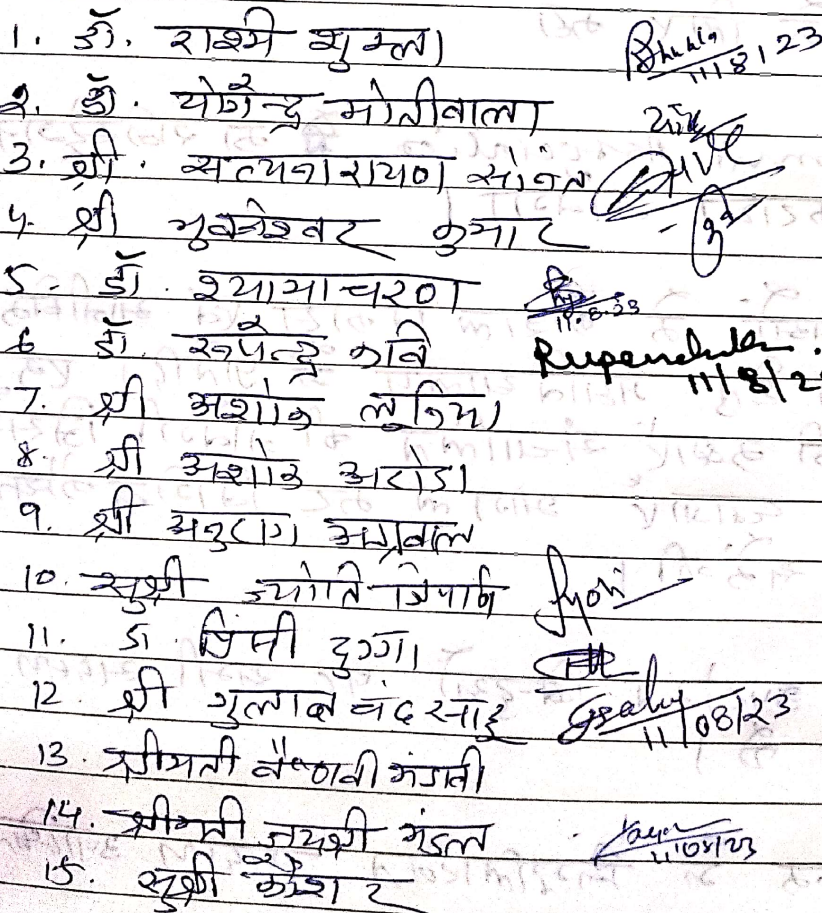 1. डॉ. राश्मी शुक्ला 11/8/23
2. डॉ. योगेन्द्र मोतीवाला
3. श्री. सत्यनारायण
4. श्री भुवनेश्वर कुमार
5. डॉ. श्यामाचरण 11.8.23
6 डॉ. रूपेन्द्र कवि Rupendra 11/8/2
7. श्री अशोक लुनिया
8. श्री अशोक अरोडा
9. श्री अनुराग अग्रवाल
10. सुश्री ज्योति त्रिपाठी Jyoti
11. डा.
12. श्री गुलाब चंद साहू Gsahu 11/08/23
13. श्रीमती वैष्णवी मंडावी
14. श्रीमती जयश्री मंडल 11/08/23
15. सुश्री